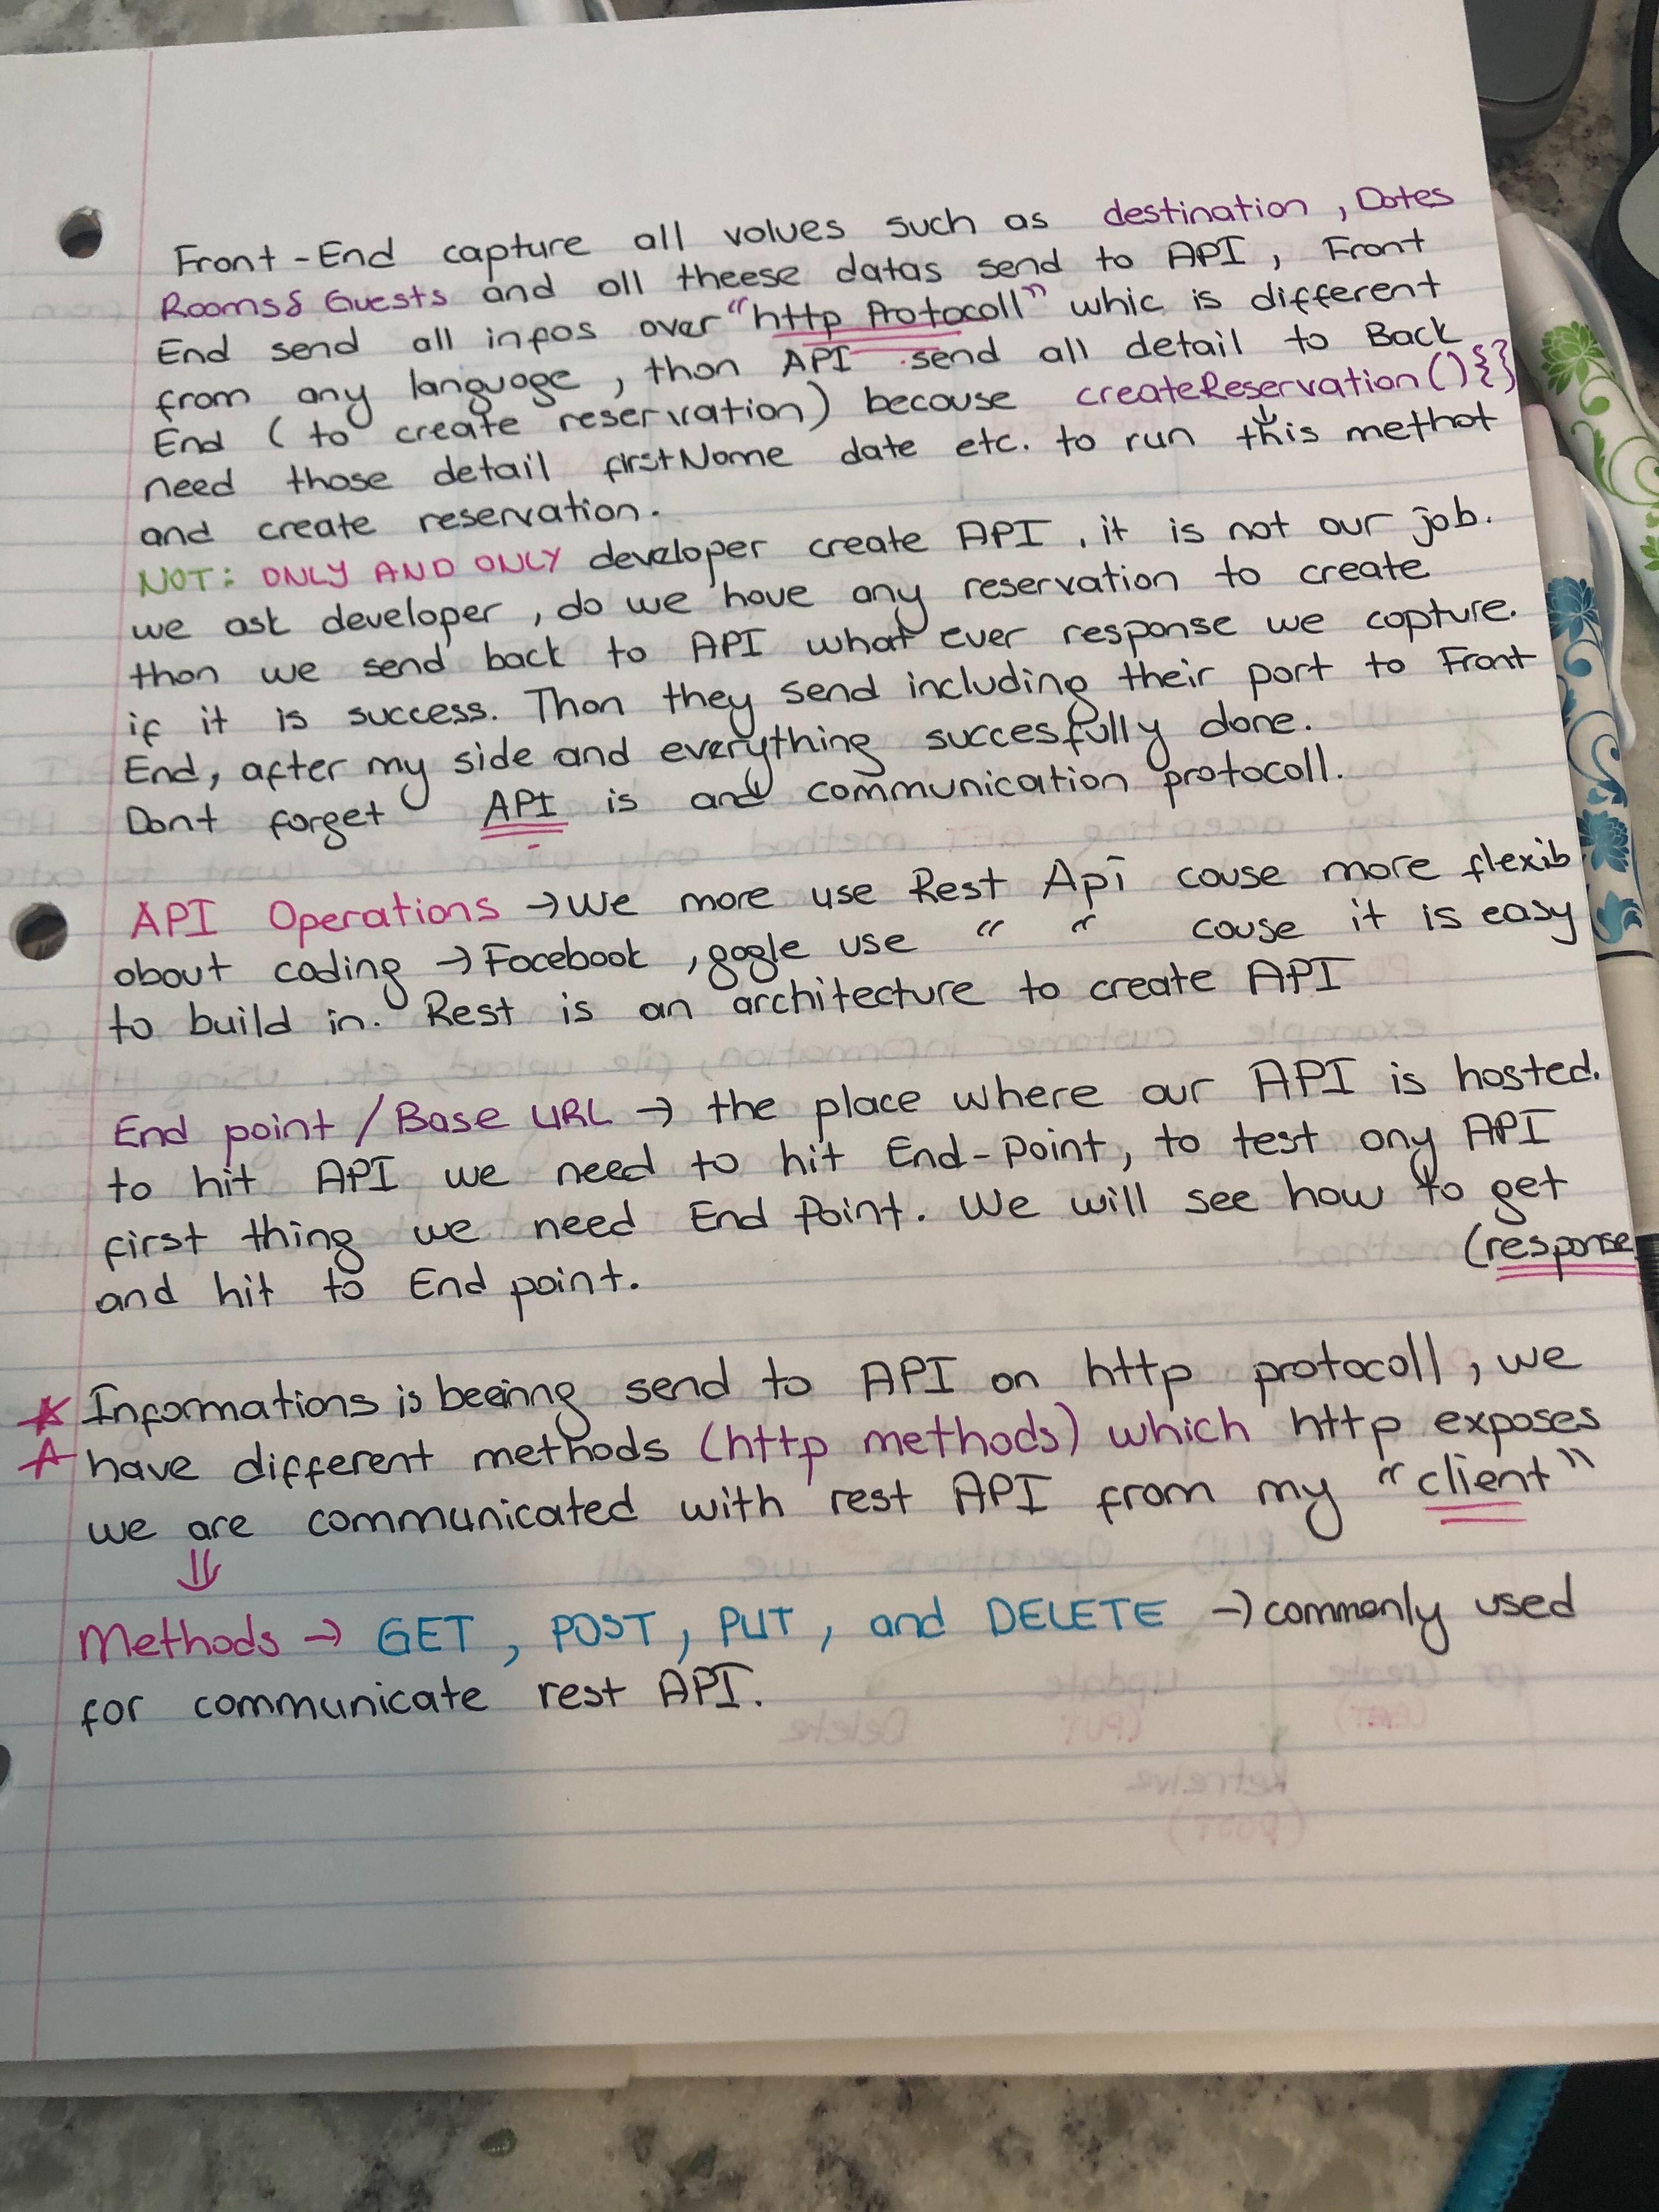 Front-End capture all values such as destination, Dates
Rooms & Guests and all theese datas send to API, Front
End send all infos over "http Protocoll" whic is different
from any language, than API send all detail to Back
End (to create reservation) because createReservation(){}
need those detail firstName date etc. to run this methot
and create reservation.
NOT: ONLY AND ONLY developer create API, it is not our job.
we ask developer, do we have any reservation to create
than we send back to API what ever response we capture.
if it is success. Than they send including their port to Front
End, after my side and everything succesfully done.
Dont forget API is and communication protocoll.
API Operations → We more use Rest Api couse more flexib
about coding → Facebook, gogle use " " couse it is easy
to build in. Rest is an architecture to create API
End point / Base URL → the place where our API is hosted.
to hit API we need to hit End-Point, to test any API
first thing we need End Point. We will see how to get
(response
and hit to End point.
Informations is beeinng send to API on http protocoll, we
have different methods (http methods) which http exposes
we are communicated with rest API from my "client"
⇓
Methods → GET, POST, PUT, and DELETE → commonly used
for communicate rest API.